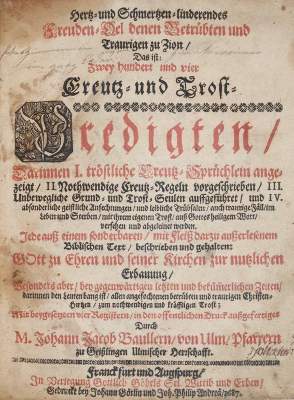 Hertz- und Schmertzen-linderendes
Freuden-Oel denen Betrübten und
Traurigen zu Zion /
Das ist:
Zwey hundert und vier
Creutz- und Trost-
Predigten /
Darinnen I. tröstliche Creutz-Sprüchlein ange-
zeigt / II. Nothwendige Creutz-Regeln vorgeschrieben / III.
Unbewegliche Grund- und Trost-Seulen auffgeführet / und IV.
absonderliche geistliche Anfechtungen / und leibliche Trübsalen / auch traurige Fäll / im
Leben und Sterben / mit ihrem eigenen Trost / auß Gottes heiligem Wort /
versehen und abgeleinet werden.
Jede auß einem sonderbaren / mit Fleiß darzu außerlesenem
Biblischen Text / beschrieben und gehalten:
GOtt zu Ehren und seiner Kirchen zur nutzlichen
Erbauung /
Besonders aber / bey gegenwärtigen letzten und betrübten Zeiten /
darinnen den Leuten bang ist / allen angefochtenen betrübten und traurigen Christen-
Hertzen / zum nothwendigen und kräfftigen Trost:
Mit beygesetzten vier Registern / in den öffentlichen Druck außgefertiget
Durch
M. Johann Jacob Baullern / von Ulm / Pfarrern
zu Geißlingen Ulmischer Herrschafft.
Franckfurt und Augspurg /
In Verlegung Gottlieb Göbels Sel. Wittib und Erben /
Gedruckt bey Johann Görlin und Joh. Philip Andreä / 1687.